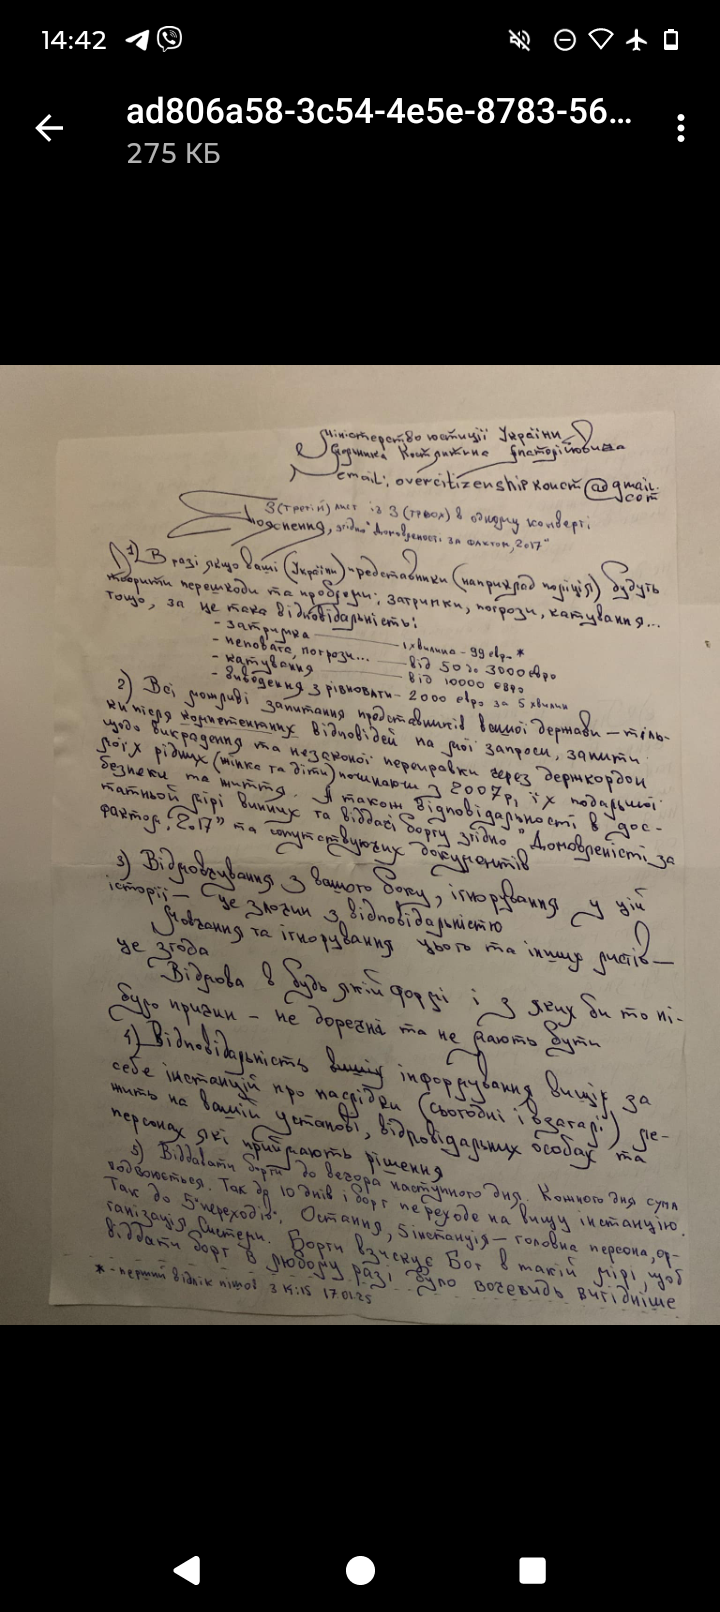 14:42
ad806a58-3c54-4e5e-8783-56...
275 КБ
Міністерство юстиції України
email: overcitizenship конст @gmail.
com
3(третій) лист із 3 (трьох) в одному конверті
Пояснення, згідно "Домовленості за фактом, 2017"
1) В разі якщо ваші (України) представники (наприклад поліція) будуть
творити перешкоди та проблеми: затримки, погрози, катування...
тощо, за це така відповідальність:
- затримка — 1 хвилина - 99 евр. *
- неповага, погрози... — від 50 до 3000 евро
- катування — від 10000 евро
- виведення з рівноваги - 2000 евро за 5 хвилин
2) Всі можливі запитання представників вашої держави — тіль-
ки після компетентних відповідей на мої запроси, запити
щодо викрадення та незаконої переправки через держкордон
моїх рідних (жінка та діти) починаючи з 2007р, їх подальшої
безпеки та життя. А також відповідальності в дос-
татньой мірі винних та віддачі боргу згідно "Домовленість за
фактом, 2017" та сопутствуючих документів
3) Відмовчування з вашого боку, ігнорування у цій
історії — це злочин з відповідальністю
Мовчання та ігнорування цього та інших листів —
це згода
Відмова в будь якій формі і з яких би то ні-
було причин — не доречна та не мають бути
4) Відповідальність інформування вищіх за
себе інстанцій про наслідки (сьогодні і взагалі) ле-
жить на вашій установі, відповідальних особах та
персонах які приймають рішення
5) Віддавати борги до вечора наступного дня. Кожного дня сума
подвоюється. Так до 10 днів і борг переходе на вищу інстанцію.
Так до 5 "переходів". Остання, 5 інстанція — головна персона, ор-
ганізація системи. Борги взискує Бог в такій мірі, щоб
віддати борг в любому разі було вочевидь вигідніше
* - перший відлік пішов з 14:15 17.01.25